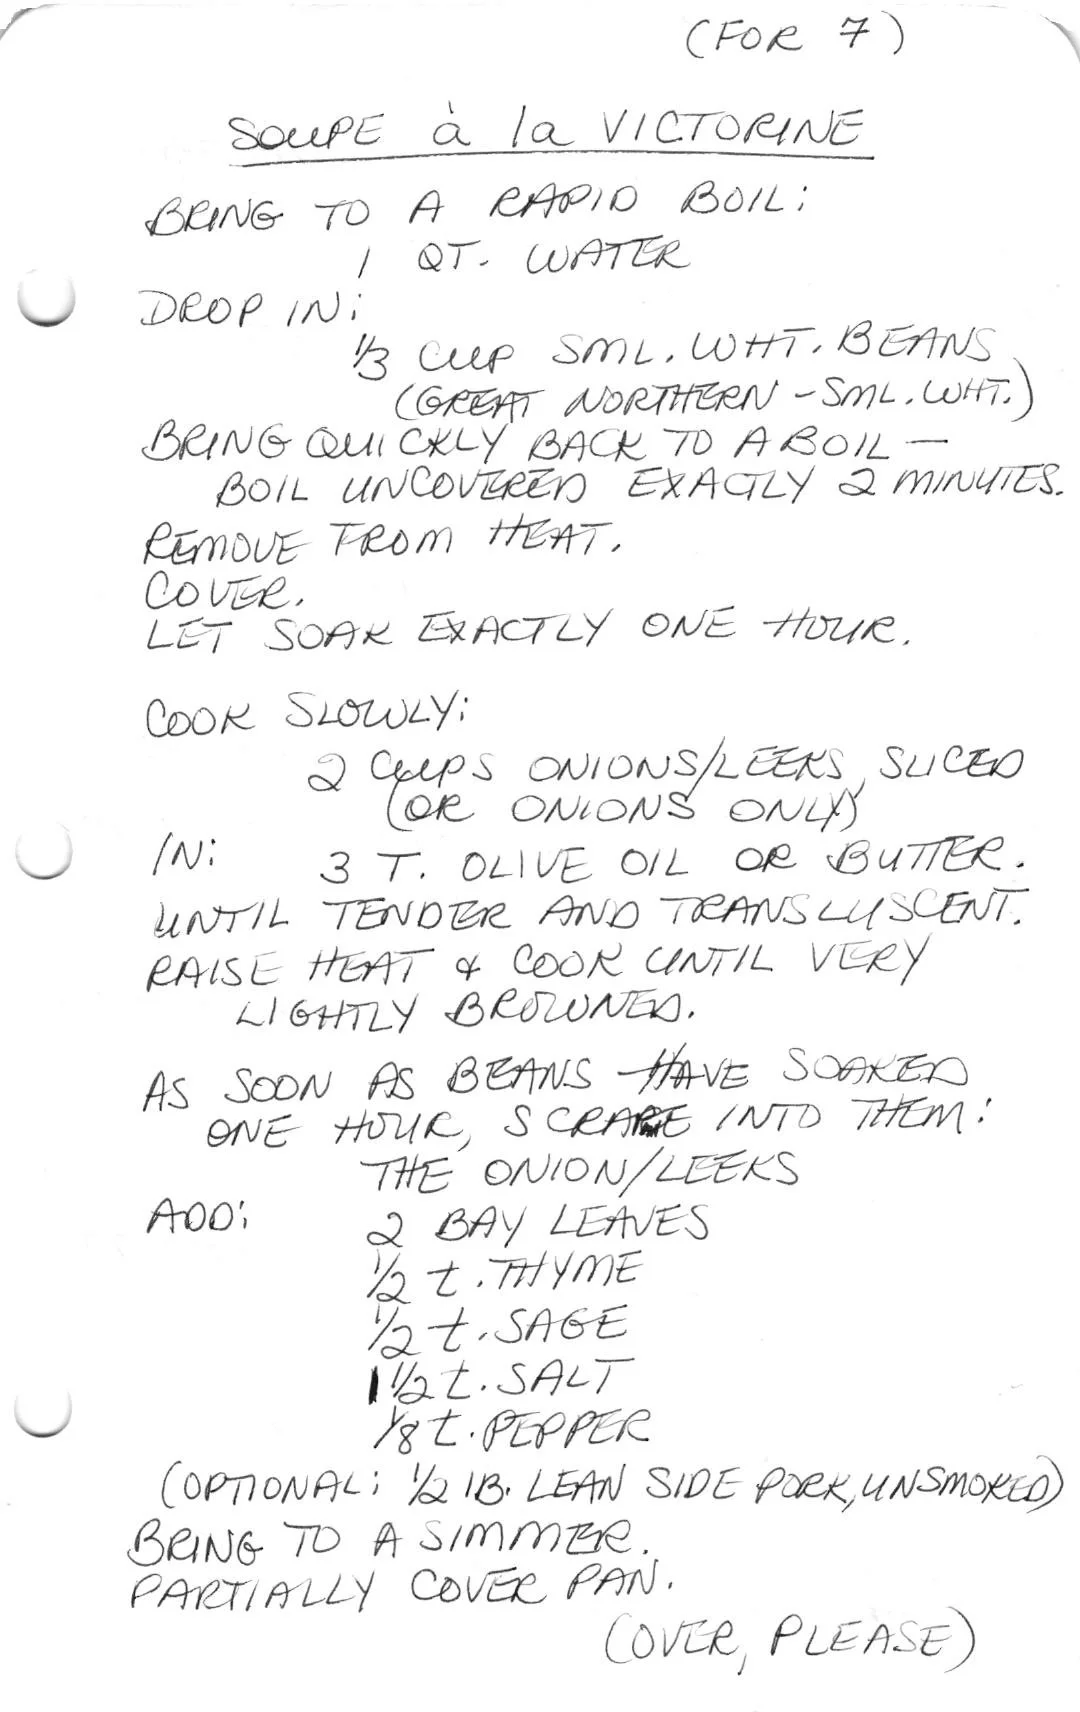 (FOR 7)
SOUPE à la VICTORINE
BRING TO A RAPID BOIL:
1 QT. WATER
DROP IN:
1/3 CUP SML. WHT. BEANS
(GREAT NORTHERN - SML. WHT.)
BRING QUICKLY BACK TO A BOIL —
BOIL UNCOVERED EXACTLY 2 MINUTES.
REMOVE FROM HEAT.
COVER.
LET SOAK EXACTLY ONE HOUR.
COOK SLOWLY:
2 CUPS ONIONS/LEEKS, SLICED
(OR ONIONS ONLY)
IN: 3 T. OLIVE OIL OR BUTTER.
UNTIL TENDER AND TRANSLUSCENT.
RAISE HEAT & COOK UNTIL VERY
LIGHTLY BROWNED.
AS SOON AS BEANS HAVE SOAKED
ONE HOUR, SCRAPE INTO THEM:
THE ONION/LEEKS
ADD: 2 BAY LEAVES
1/2 t. THYME
1/2 t. SAGE
1 1/2 t. SALT
1/8 t. PEPPER
(OPTIONAL: 1/2 lB. LEAN SIDE PORK, UNSMOKED)
BRING TO A SIMMER.
PARTIALLY COVER PAN.
(OVER, PLEASE)